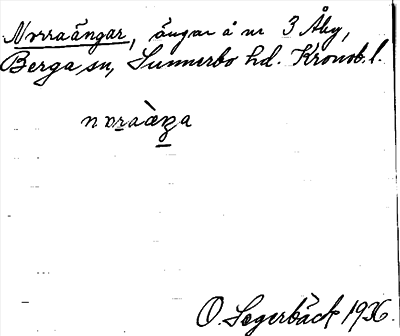 Norraängar, ängar å nr 3 Åby,
Berga sn, Sunnerbo hd. Kronob. l.
O. Segerbäck 1936.